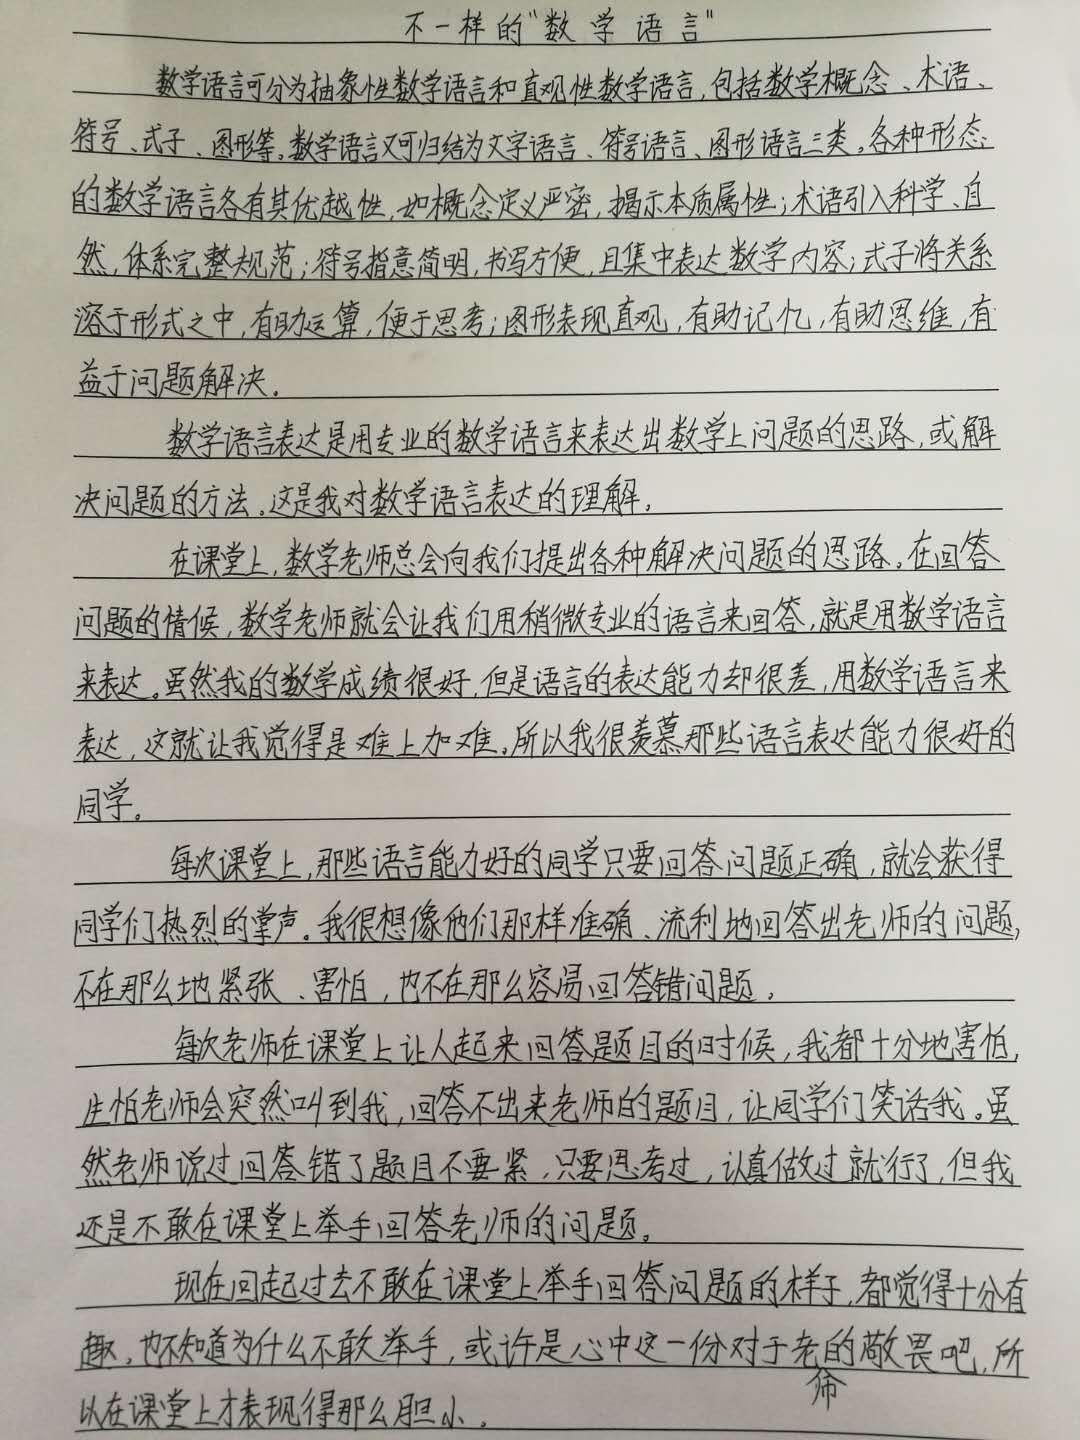 不一样的"数学语言"
数学语言可分为抽象性数学语言和直观性数学语言,包括数学概念、术语、
符号、式子、图形等。数学语言又可归结为文字语言、符号语言、图形语言三类。各种形态
的数学语言各有其优越性,如概念定义严密,揭示本质属性;术语引入科学、自
然,体系完整规范;符号指意简明,书写方便,且集中表达数学内容;式子将关系
溶于形式之中,有助运算,便于思考;图形表现直观,有助记忆,有助思维,有
益于问题解决。
数学语言表达是用专业的数学语言来表达出数学上问题的思路,或解
决问题的方法。这是我对数学语言表达的理解。
在课堂上,数学老师总会向我们提出各种解决问题的思路。在回答
问题的情候,数学老师就会让我们用稍微专业的语言来回答,就是用数学语言
来表达。虽然我的数学成绩很好,但是语言的表达能力却很差,用数学语言来
表达,这就让我觉得是难上加难。所以我很羡慕那些语言表达能力很好的
同学。
每次课堂上,那些语言能力好的同学只要回答问题正确,就会获得
同学们热烈的掌声。我很想像他们那样准确、流利地回答出老师的问题,
不在那么地紧张、害怕,也不在那么容易回答错问题。
每次老师在课堂上让人起来回答题目的时候,我都十分地害怕,
生怕老师会突然叫到我,回答不出来老师的题目,让同学们笑话我。虽
然老师说过回答错了题目不要紧,只要思考过,认真做过就行了,但我
还是不敢在课堂上举手回答老师的问题。
现在回起过去不敢在课堂上举手回答问题的样子,都觉得十分有
趣,也不知道为什么不敢举手,或许是心中这一份对于老师的敬畏吧,所
以在课堂上才表现得那么胆小。